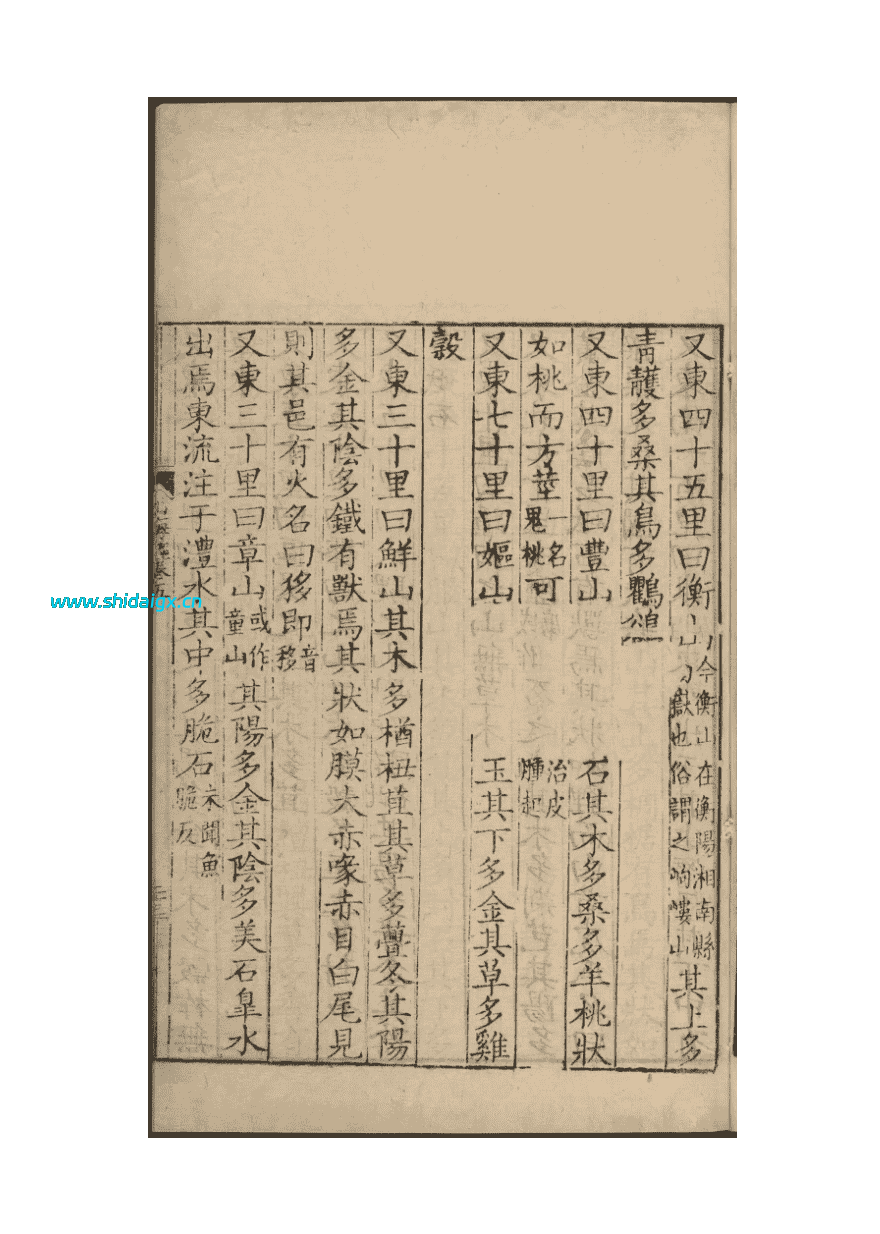 又東四十五里曰衡山今衡山在衡陽湘南縣嶽也俗謂之岣嶁山其上多
青䨼多桑其鳥多鸜鵒
又東四十里曰豐山石其木多桑多羊桃狀
如桃而方莖一名鬼桃可治皮腫起
又東七十里曰嫗山玉其下多金其草多雞
穀
又東三十里曰鮮山其木多楢杻苴其草多虋冬其陽
多金其陰多鐵有獸焉其狀如膜大赤喙赤目白尾見
則其邑有火名曰移即音移
又東三十里曰章山或作童山其陽多金其陰多美石皐水
出焉東流注于澧水其中多脆石未聞魚脆反
www.shidaigx.cn